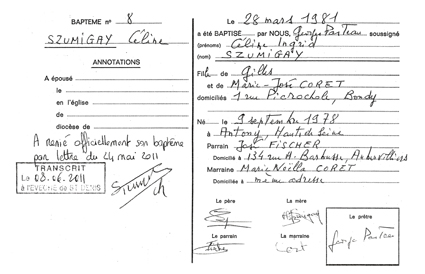 BAPTEME n° 8
SZUMIGAY Céline
ANNOTATIONS
A épousé
le
en l'église
de
diocèse de
A renié officiellement son baptême
par lettre du 24 mai 2011
TRANSCRIT
Le 03.06.2011
à l'EVECHE de ST DENIS
Le 28 mars 1981
a été BAPTISÉ par NOUS, George Pasteau soussigné
(prénoms) Céline Ingrid
(nom) SZUMIGAY
Fille de Gilles
et de Marie-José CORET
domiciliés 1 rue Picrochole, Bondy
Né le 9 septembre 1978
à Antony, Hauts de Seine
Parrain José FISCHER
Domicilié à 134 rue H. Barbusse, Aubervilliers
Marraine Marie Noëlla CORET
Domiciliée à même adresse
Le père
La mère
Le prêtre
Le parrain
La marraine
George Pasteau